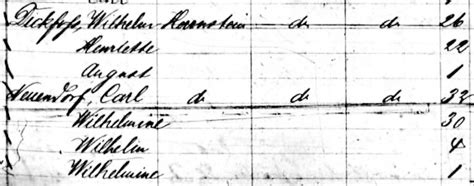 Dickhoff, Wilhelm Hornstein do do do 26
Henriette 22
August 1
Neuendorf, Carl do do do 32
Wilhelmine 30
Wilhelm 4
Wilhelmine 1